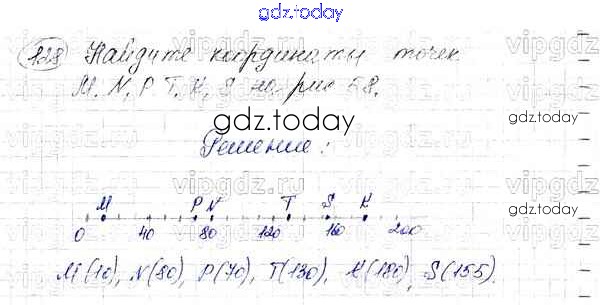 gdz.today
128 Найдите координаты точек
M, N, P, T, K, S на рис 58.
gdz.today
Решение:
M P N T S K
0 40 80 120 160 200
M(10), N(80), P(70), T(130), K(180), S(155).
gdz.today